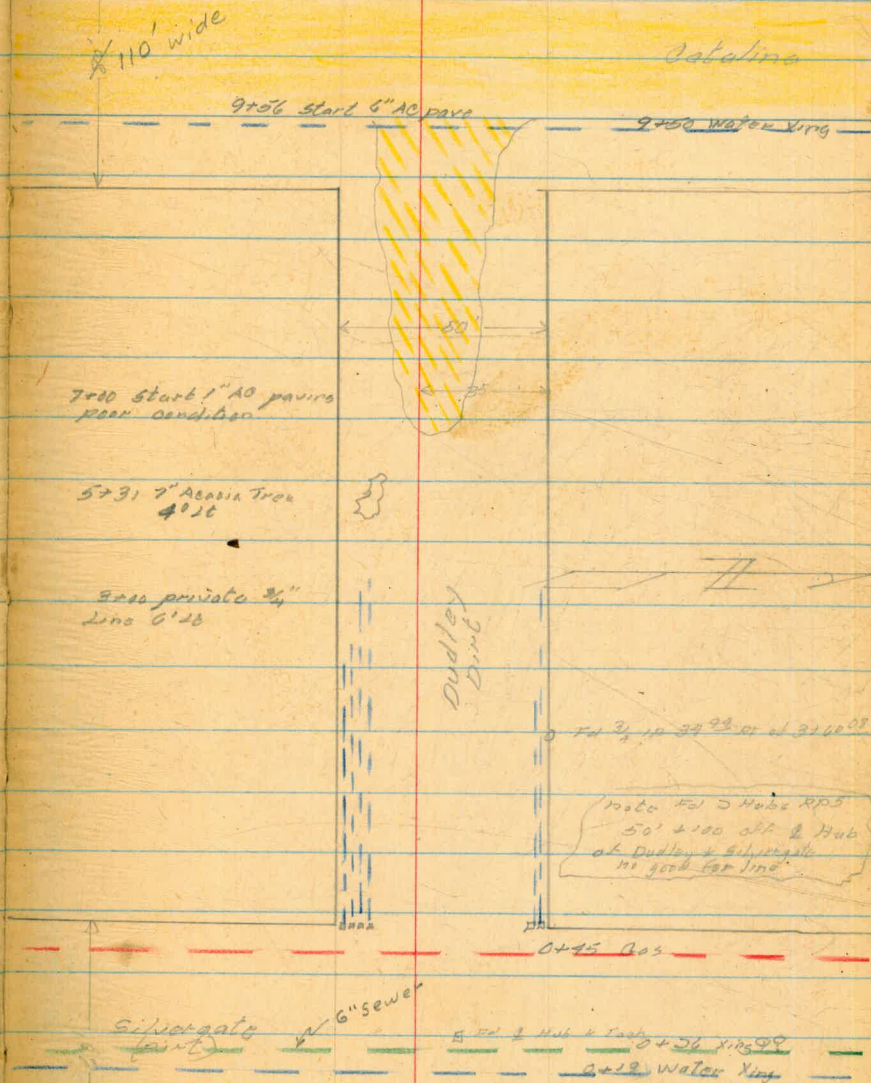 110' wide
Catalina
9+56 start 6" AC pave
9+50 water Xing
80'
35
7+00 start 1" AC paving
poor condition
5+31 7" Acacia Tree
4' Lt
3+00 private 3/4"
Line 6' Lt
Dudley
Dirt
Fd 3/4 IP 34.99 Rt at 3+60.08
note Fd 2 Hubs RPS
50' & 100 off ℄ Hub
at Dudley & Silvergate
no good for line
0+45 Gas
6" sewer
Silvergate
(Dirt)
Fd ℄ Hub & Tack
0+26 Xing
0+19 Water Xing